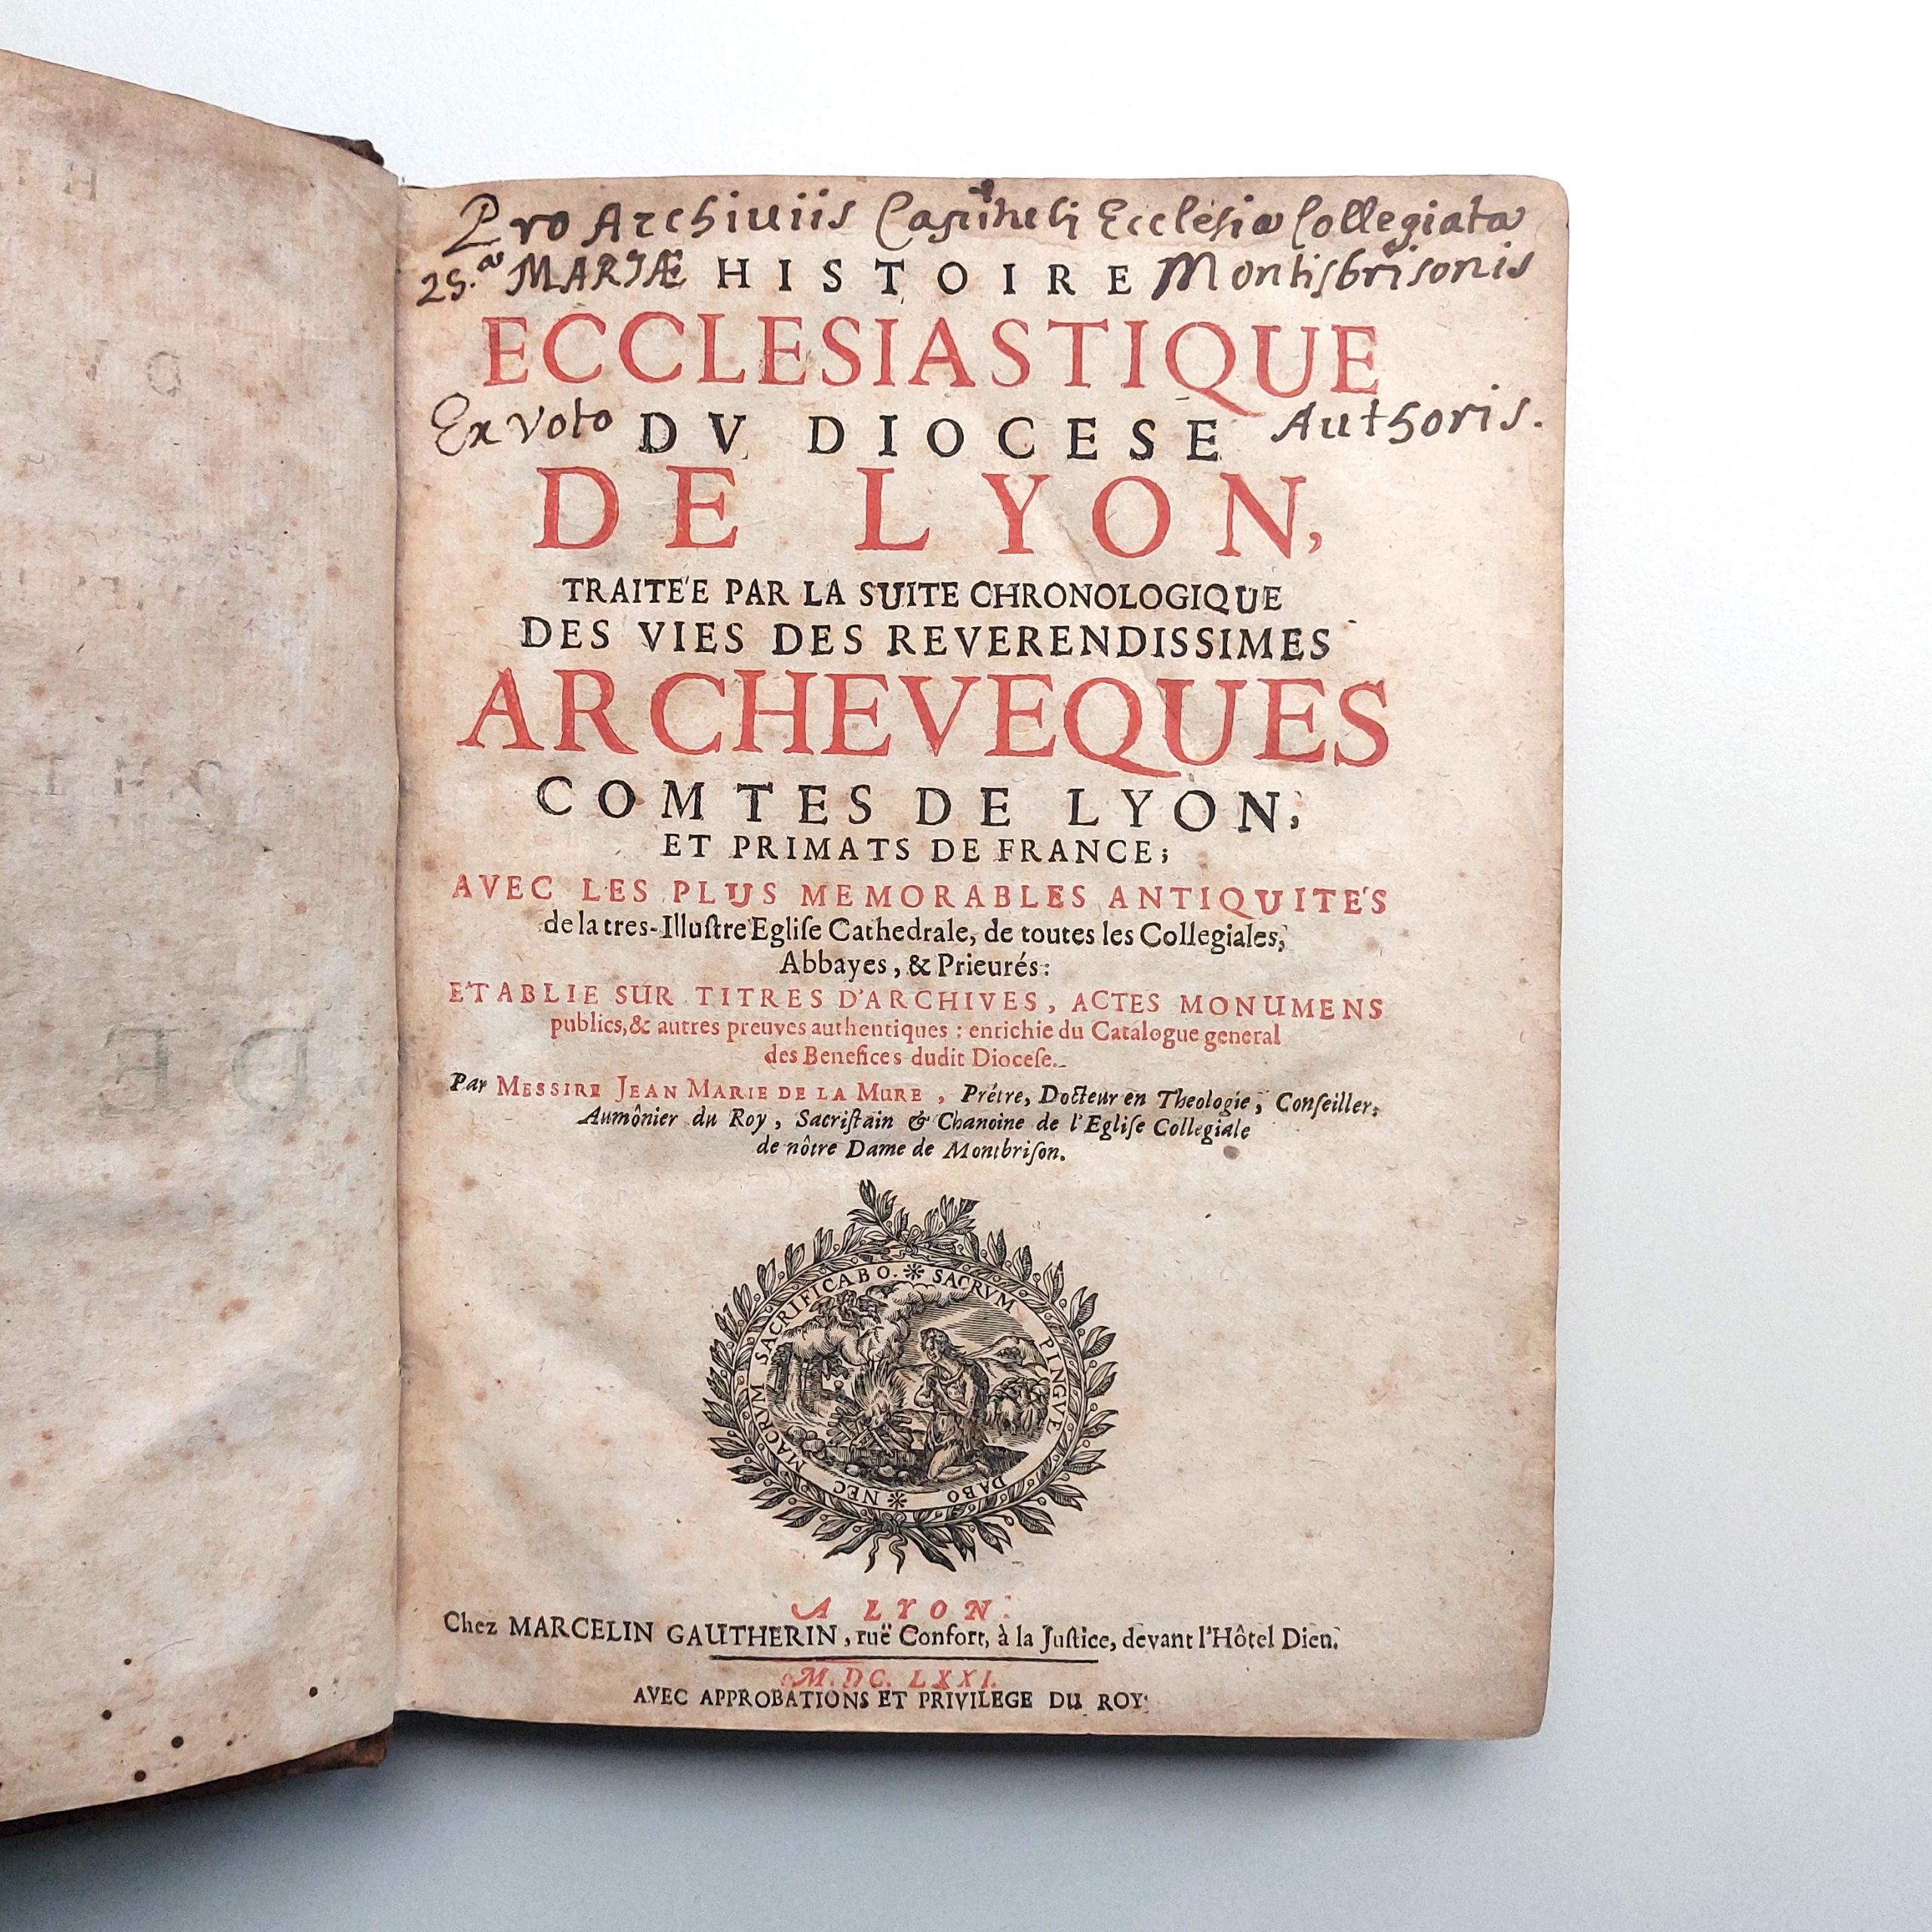 Pro Archiuiis Capituli Ecclesiæ Collegiatæ
MARIÆ HISTOIRE Montisbrisonis
ECCLESIASTIQUE
Ex voto DV DIOCESE Authoris.
DE LYON,
TRAITE'E PAR LA SUITE CHRONOLOGIQUE
DES VIES DES REVERENDISSIMES
ARCHEVEQUES
COMTES DE LYON,
ET PRIMATS DE FRANCE;
AVEC LES PLUS MEMORABLES ANTIQUITE'S
de la tres-Illuſtre Egliſe Cathedrale, de toutes les Collegiales,
Abbayes, & Prieurés:
E'TABLIE SUR TITRES D'ARCHIVES, ACTES MONUMENS
publics, & autres preuves authentiques : enrichie du Catalogue general
des Benefices dudit Dioceſe.
Par MESSIRE JEAN MARIE DE LA MURE, Prêtre, Docteur en Theologie, Conſeiller,
Aumônier du Roy, Sacriſtain & Chanoine de l'Egliſe Collegiale
de nôtre Dame de Montbriſon.
SACRVM PINGVE DABO * NEC MACRVM SACRIFICABO. *
A LYON.
Chez MARCELIN GAUTHERIN, ruë Confort, à la Juſtice, devant l'Hôtel Dieu.
M. DC. LXXI.
AVEC APPROBATIONS ET PRIVILEGE DU ROY.